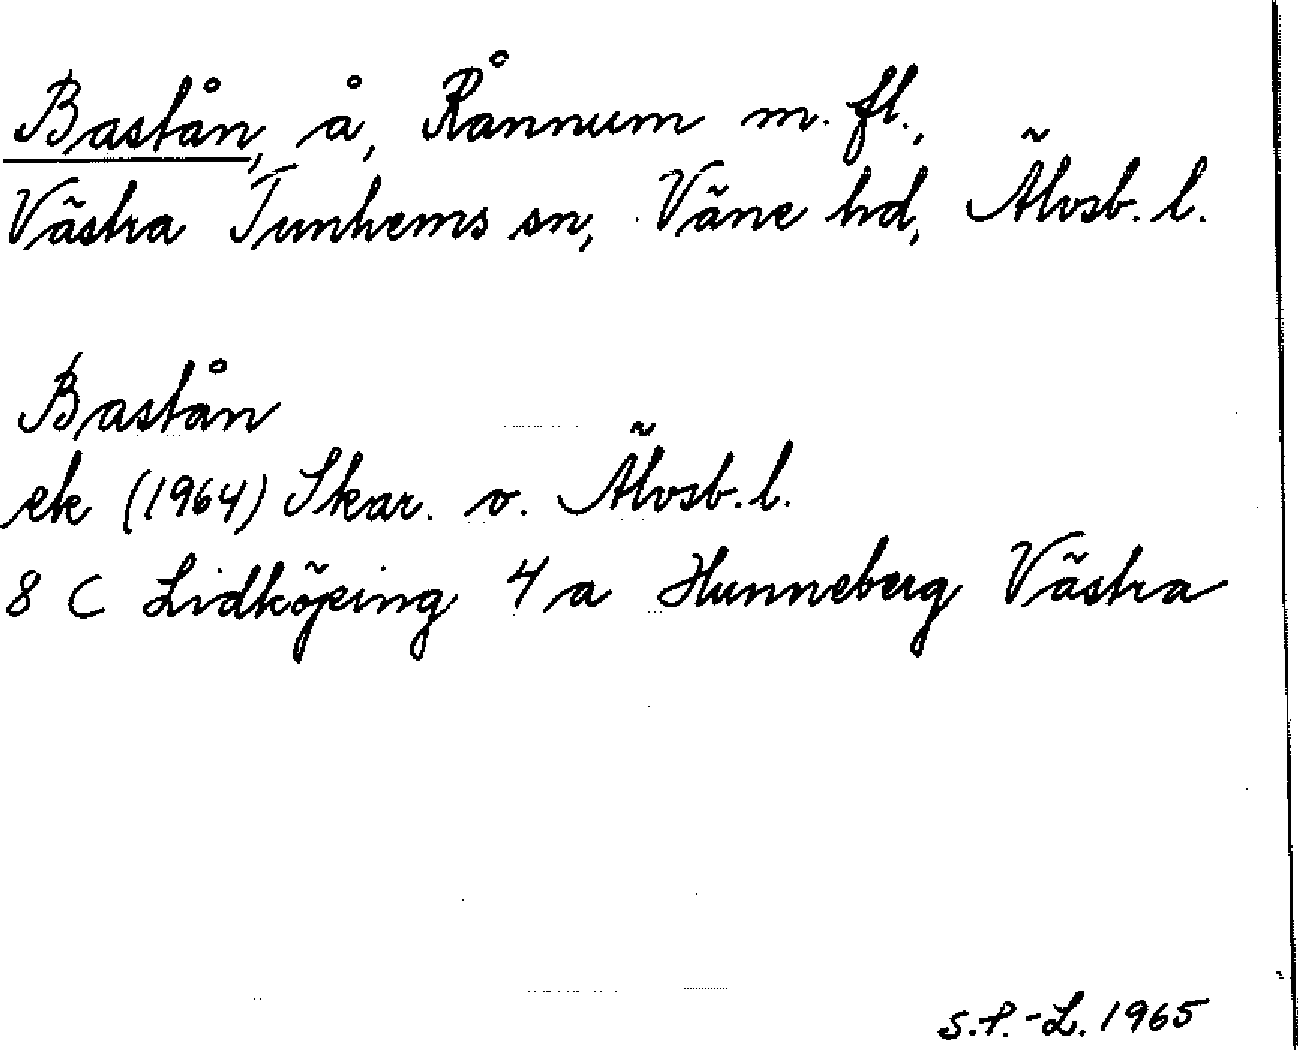 Bastån, å, Rånnum m. fl.,
Västra Tunhems sn, Väne hd, Älvsb. l.
Bastån
ek (1964) Skar. o. Älvsb. l.
8 C Lidköping 4 a Hunneberg Västra
S.P.-L. 1965